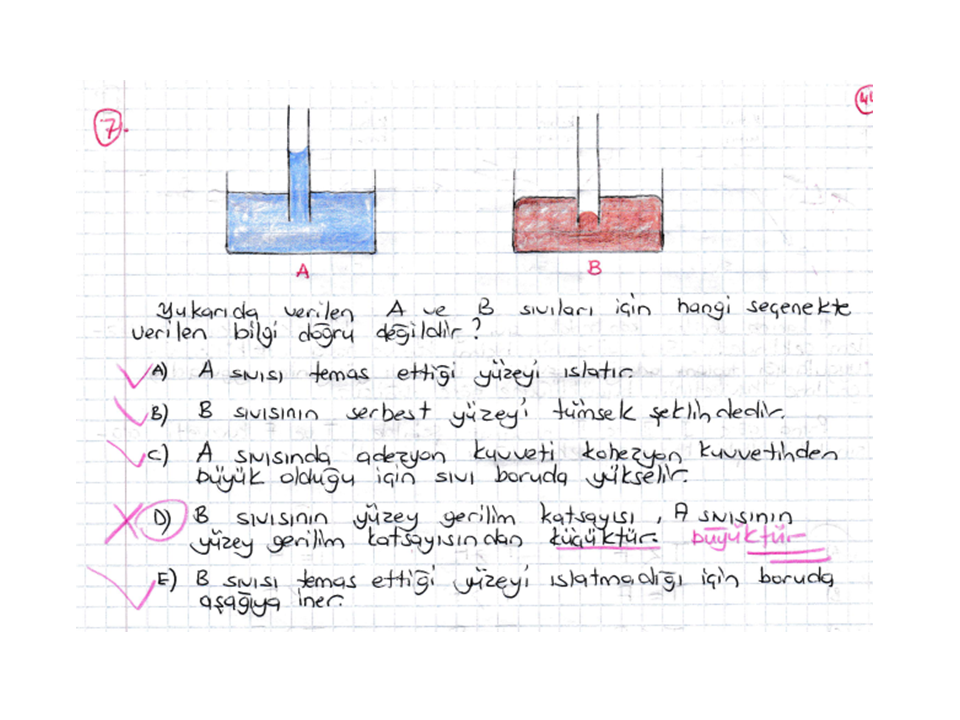 7.
A
B
Yukarıda verilen A ve B sıvıları için hangi seçenekte
verilen bilgi doğru değildir?
A) A sıvısı temas ettiği yüzeyi ıslatır.
B) B sıvısının serbest yüzeyi tümsek şeklindedir.
C) A sıvısında adezyon kuvveti kohezyon kuvvetinden
büyük olduğu için sıvı boruda yükselir.
D) B sıvısının yüzey gerilim katsayısı, A sıvısının
yüzey gerilim katsayısından küçüktür. büyüktür
E) B sıvısı temas ettiği yüzeyi ıslatmadığı için boruda
aşağıya iner.